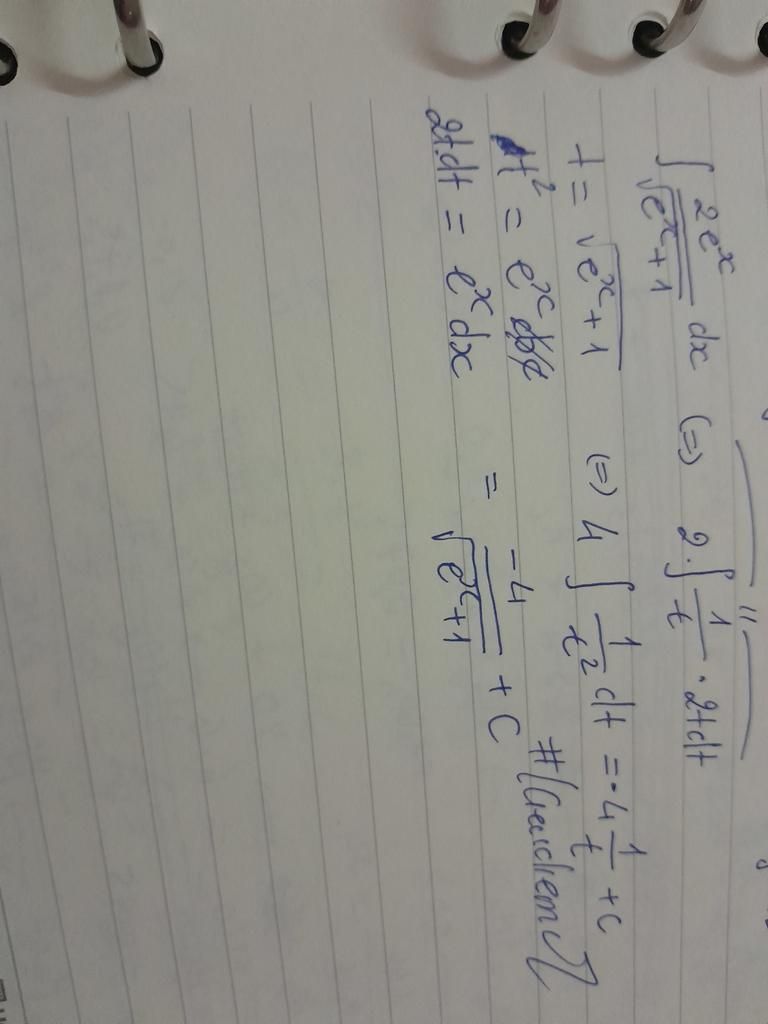 ∫ 2e^x / √(e^x+1) dx (=) 2·∫ 1/t · 2tdt
t = √(e^x+1) (=) 4 ∫ 1/t² dt = -4 1/t + C
t² = e^x
2t.dt = e^x dx = -4 / √(e^x+1) + C #